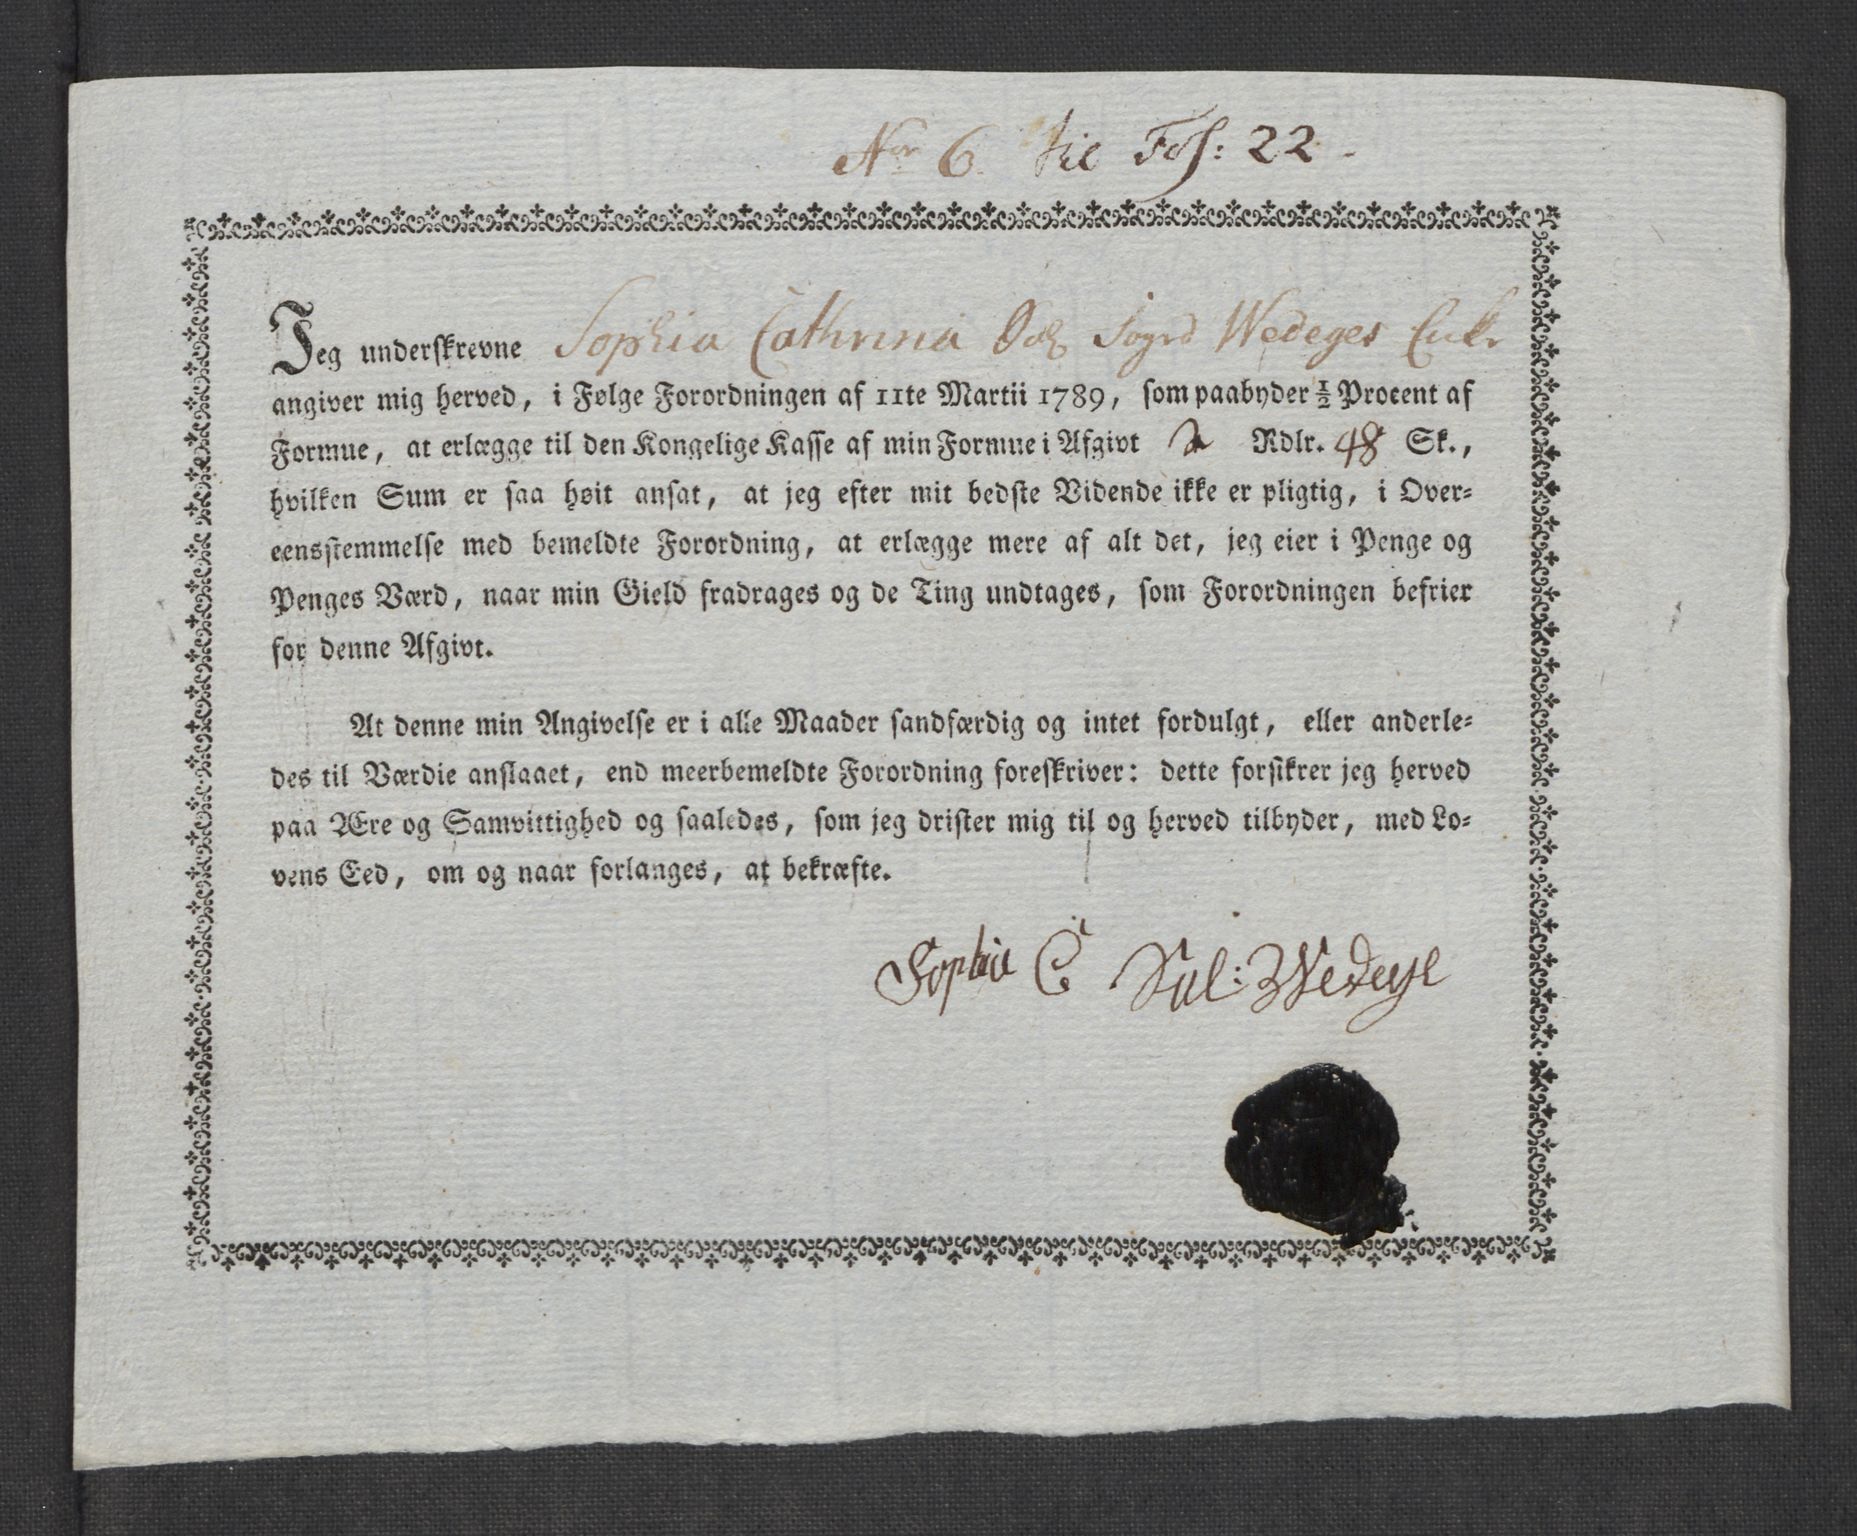 No 6. til Fol: 22.
Jeg underskrevne Sophia Cathrina Sogrs Wedeges Enke
angiver mig herved, i Følge Forordningen af 11te Martii 1789, som paabyder ½ Procent af
Formue, at erlægge til den Kongelige Kasse af min Formue i Afgivt 2 Rdlr. 48 Sk.,
hvilken Sum er saa høit ansat, at jeg efter mit bedste Vidende ikke er pligtig, i Over-
eensstemmelse med bemeldte Forordning, at erlægge mere af alt det, jeg eier i Penge og
Penges Værd, naar min Gield fradrages og de Ting undtages, som Forordningen befrier
for denne Afgivt.
At denne min Angivelse er i alle Maader sandfærdig og intet fordulgt, eller anderle-
des til Værdie anslaaet, end meerbemeldte Forordning foreskriver: dette forsikrer jeg herved
paa Ære og Samvittighed og saaledes, som jeg drister mig til og herved tilbyder, med Lo-
vens Eed, om og naar forlanges, at bekræfte.
Sophia C Sal: Wedege